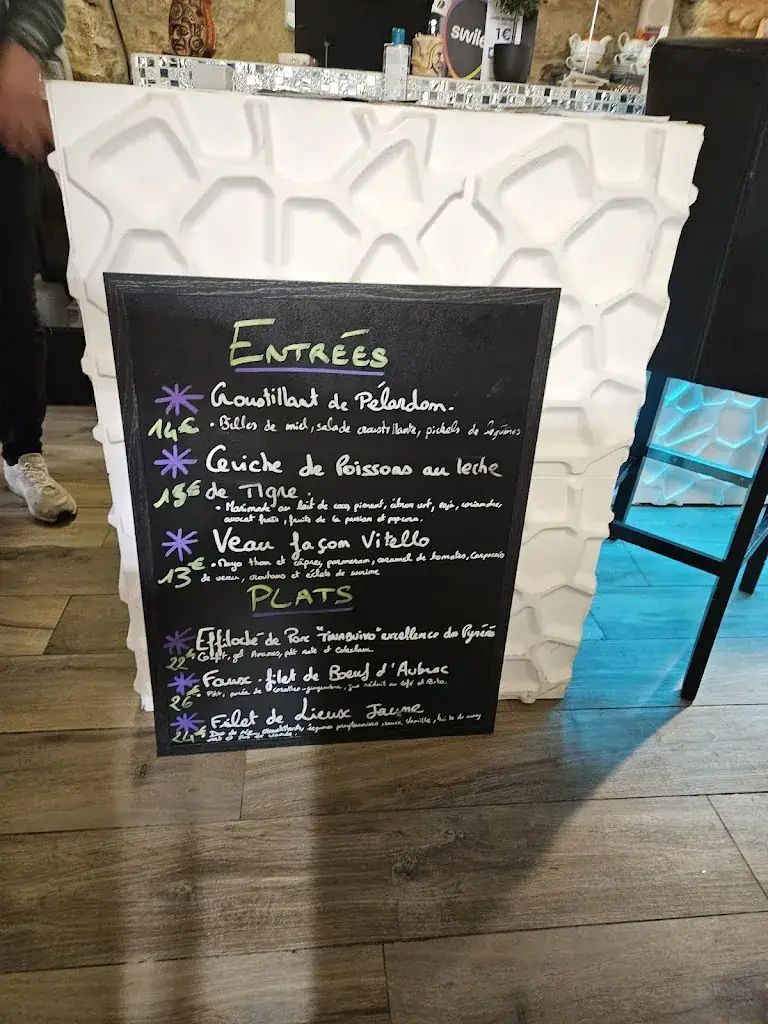 swile
1€
ENTRÉES
Croustillant de Pélardom.
14€ • Billes de miel, salade croustillante, pickels de légumes
Ceviche de Poissons au leche
15€ de Tigre.
• Marinade au lait de coco, piment, citron vert, soja, coriandre,
avocat frais, fruits de la passion et popcorn.
Veau façon Vitello
13€ • Mayo thon et câpres, parmesan, caramel de tomates, Carpaccio
de veau, croutons et éclats de sucrine
PLATS
Effiloché de Porc excellence des Pyrénés
22€ Confit, gel Ananas, et Coleslaw.
Faux-filet de Boeuf d'Aubrac
26€ purée de carottes-gingembre, jus réduit au café et
Filet de Lieux Jaune
24€ Duo de légumes sauce Vanille,
vert et